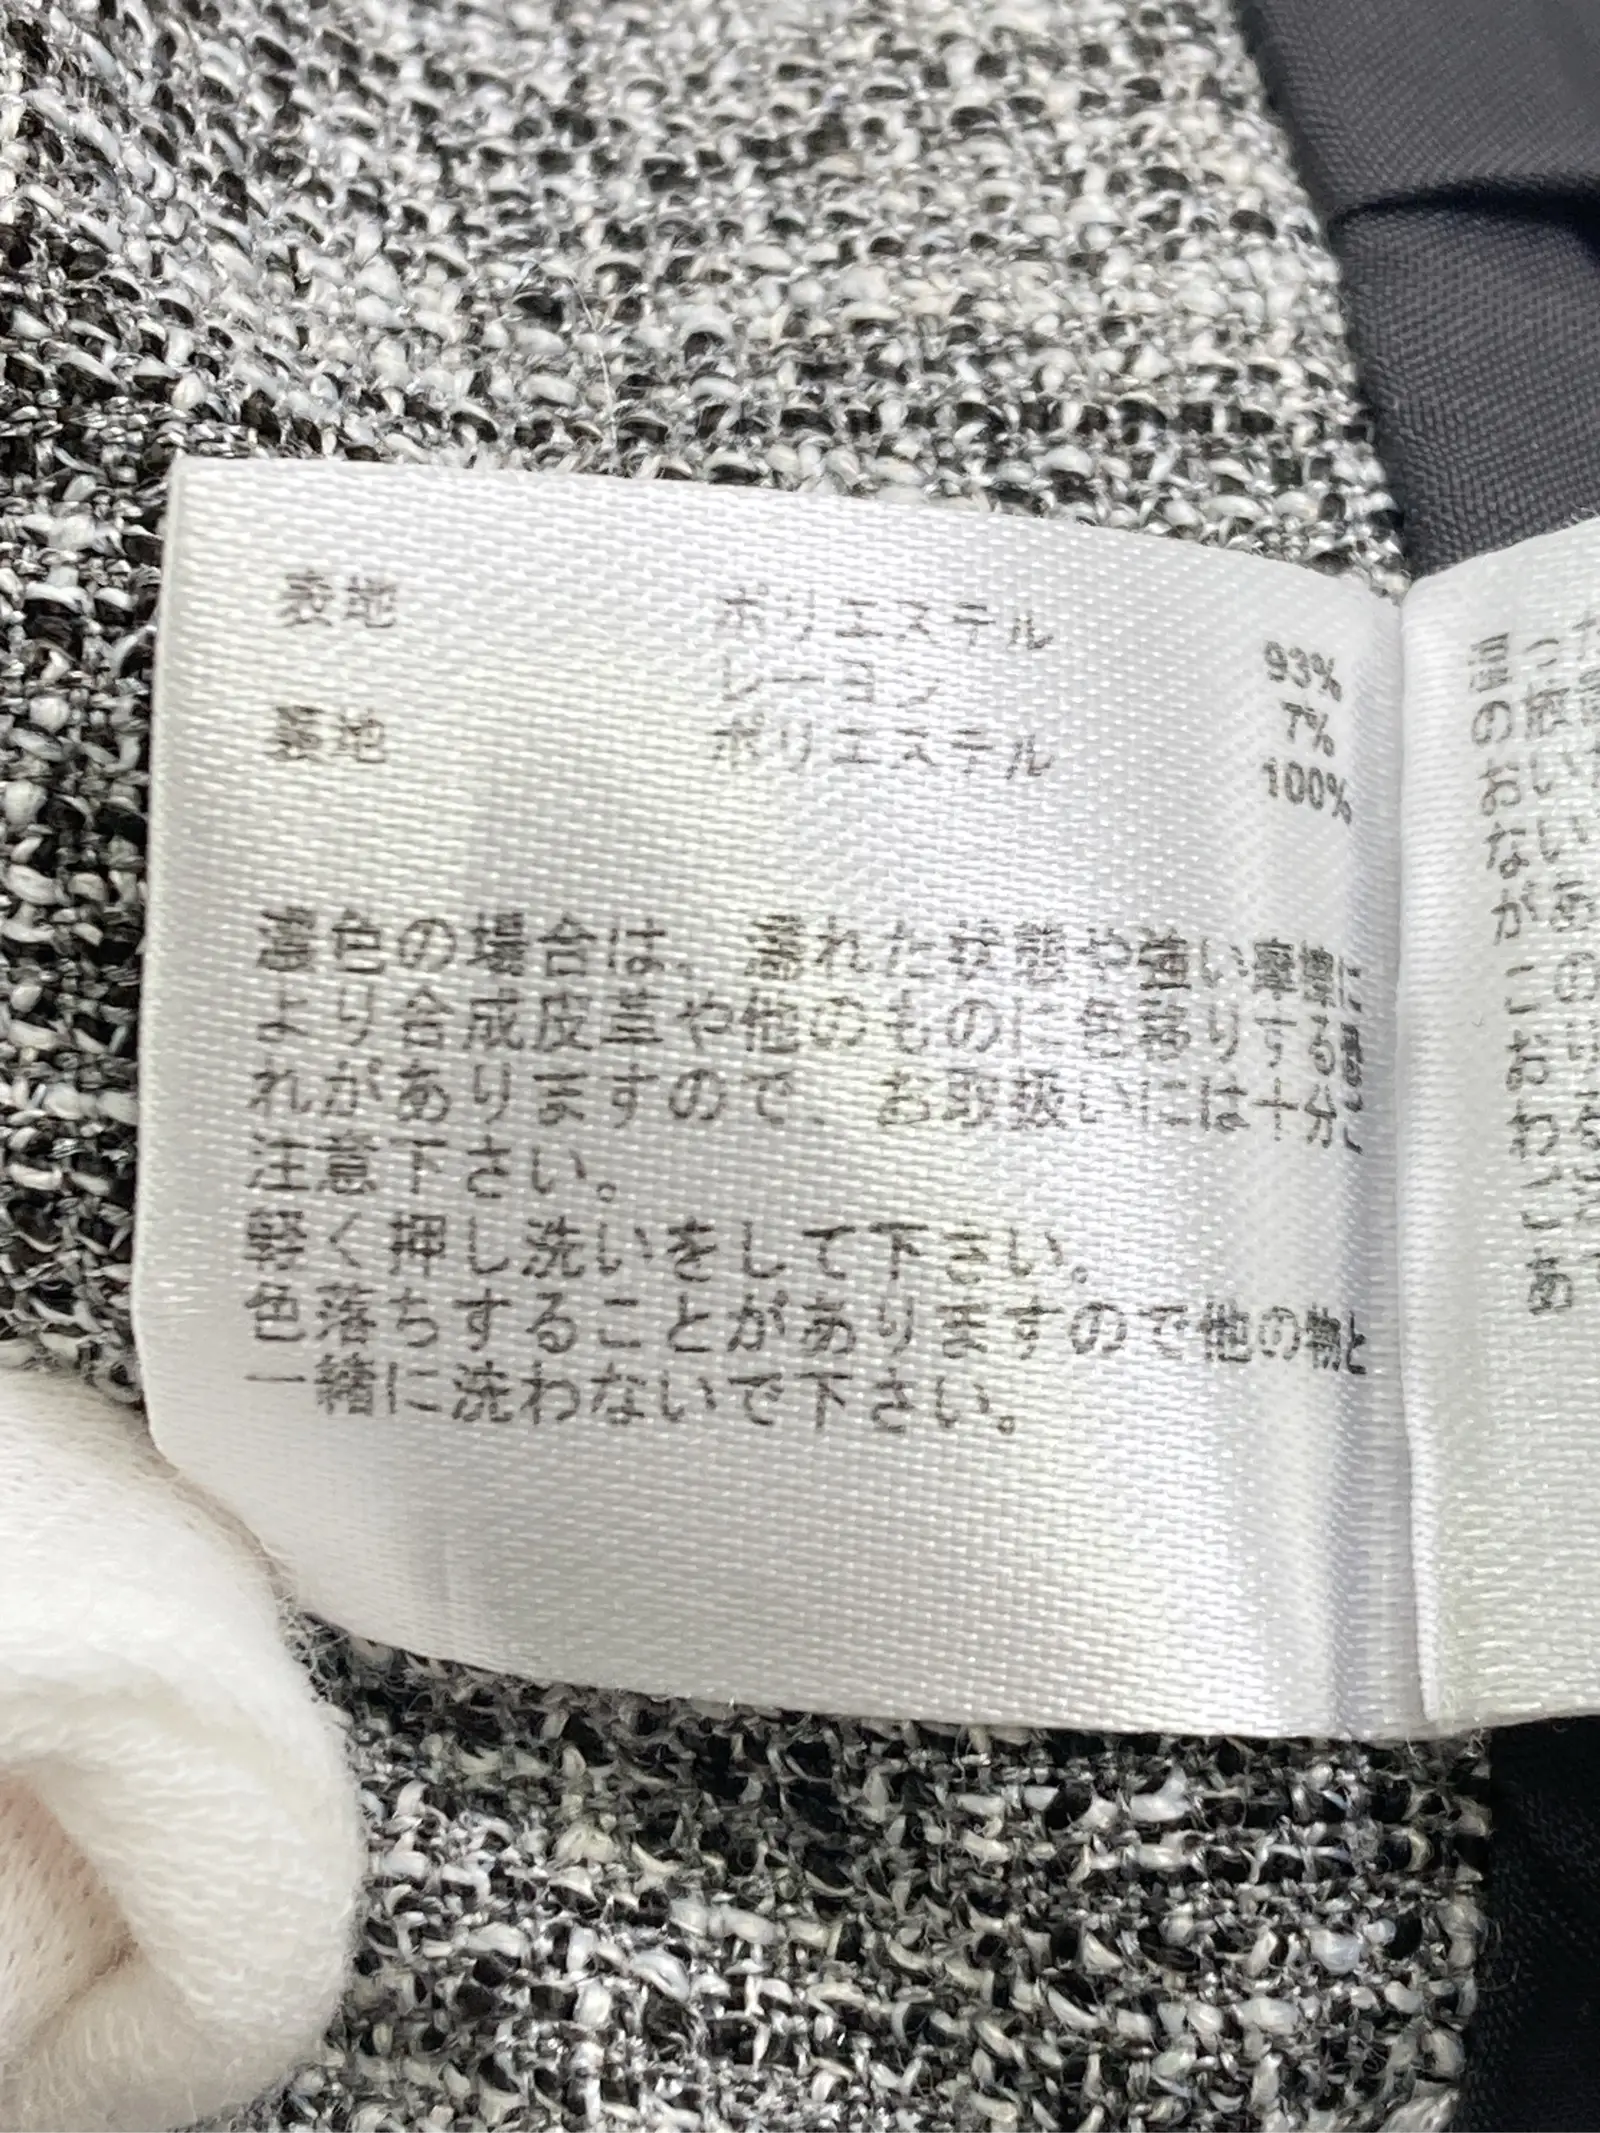 表地 ポリエステル 93%
レーヨン 7%
裏地 ポリエステル 100%
濃色の場合は、濡れた状態や強い摩擦に
より合成皮革や他のものに色移りする恐
れがありますので、お取扱いには十分ご
注意下さい。
軽く押し洗いをして下さい。
色落ちすることがありますので他の物と
一緒に洗わないで下さい。